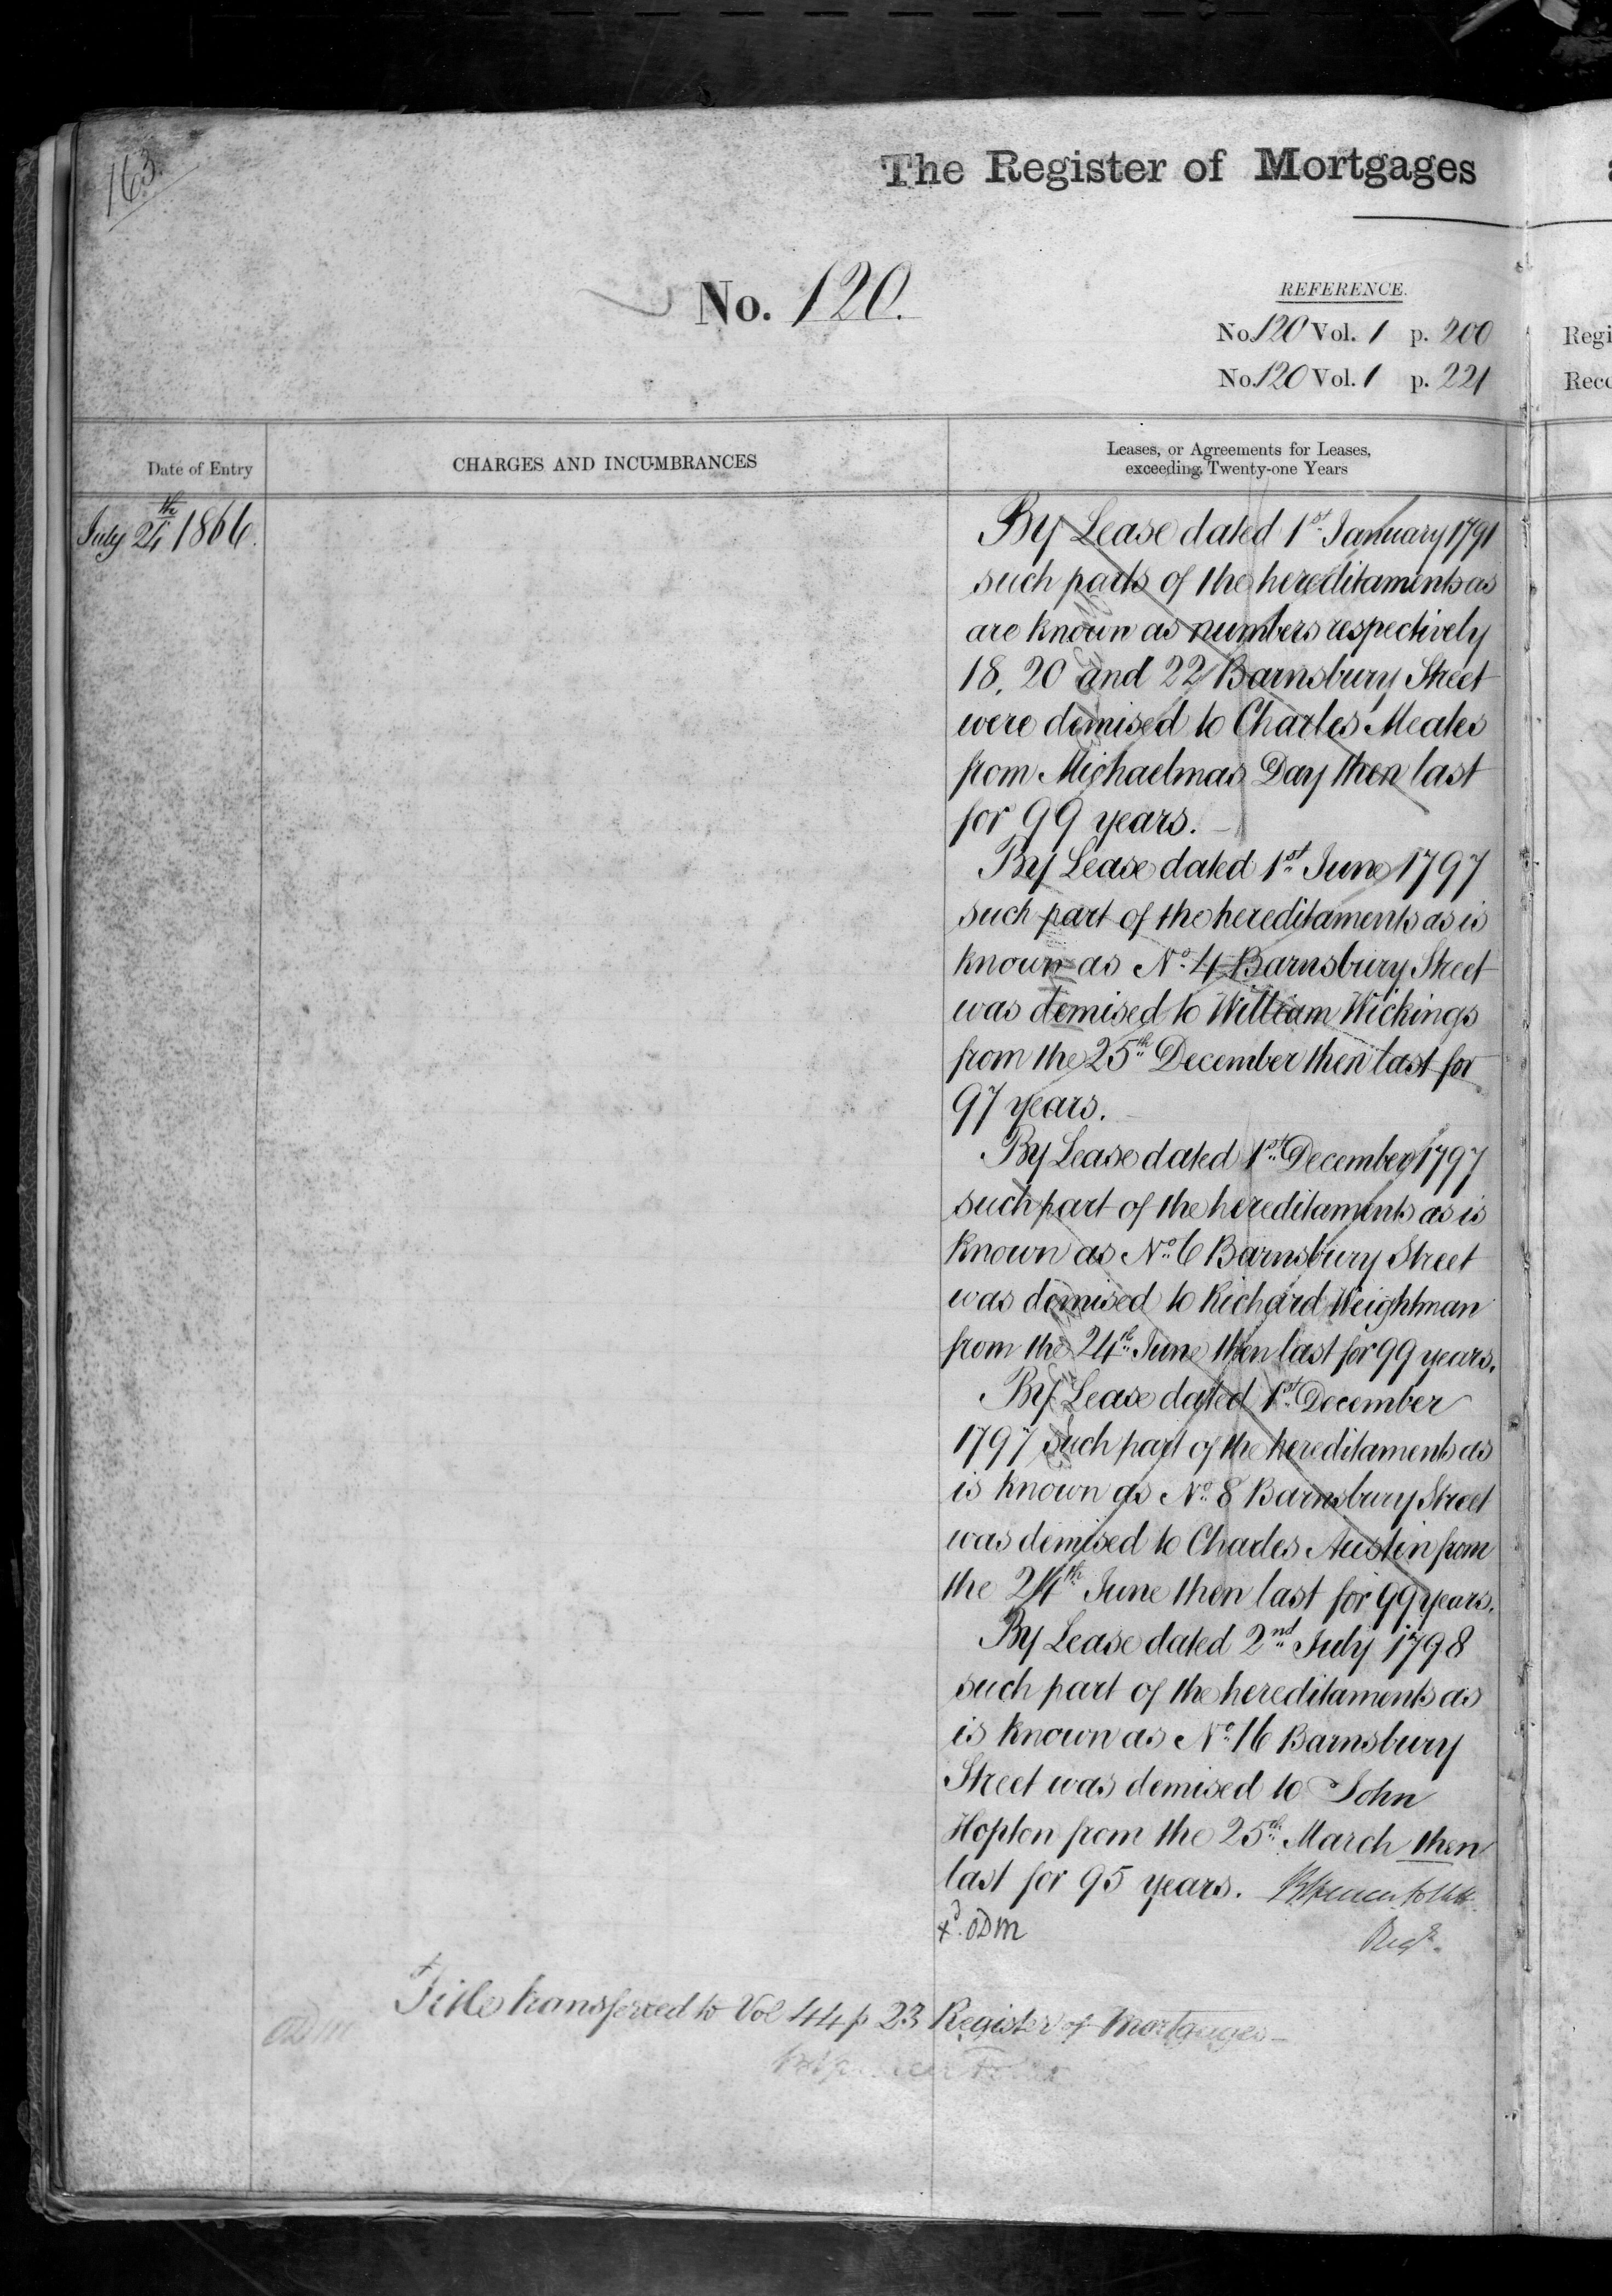 163.
The Register of Mortgages
No. 120.
REFERENCE.
No. 120 Vol. 1 p. 200
No. 120 Vol. 1 p. 221
Regi
Reco
Date of Entry
CHARGES AND INCUMBRANCES
Leases, or Agreements for Leases,
exceeding Twenty-one Years
July 24th 1866.
By Lease dated 1st January 1791
such parts of the hereditaments as
are known as numbers respectively
18, 20 and 22 Barnsbury Street
were demised to Charles Meates
from Michaelmas Day then last
for 99 years.
By Lease dated 1st June 1797
such part of the hereditaments as is
known as No. 4 Barnsbury Street
was demised to William Wickings
from the 25th December then last for
97 years.
By Lease dated 1st December 1797
such part of the hereditaments as is
known as No. 6 Barnsbury Street
was demised to Richard Weightman
from the 24th June then last for 99 years.
By Lease dated 1st December
1797 such part of the hereditaments as
is known as No. 8 Barnsbury Street
was demised to Charles Austin from
the 24th June then last for 99 years.
By Lease dated 2nd July 1798
such part of the hereditaments as
is known as No. 16 Barnsbury
Street was demised to John
Hopton from the 25th March then
last for 95 years.
Regr.
Title transferred to Vol 44 p 23 Register of Mortgages